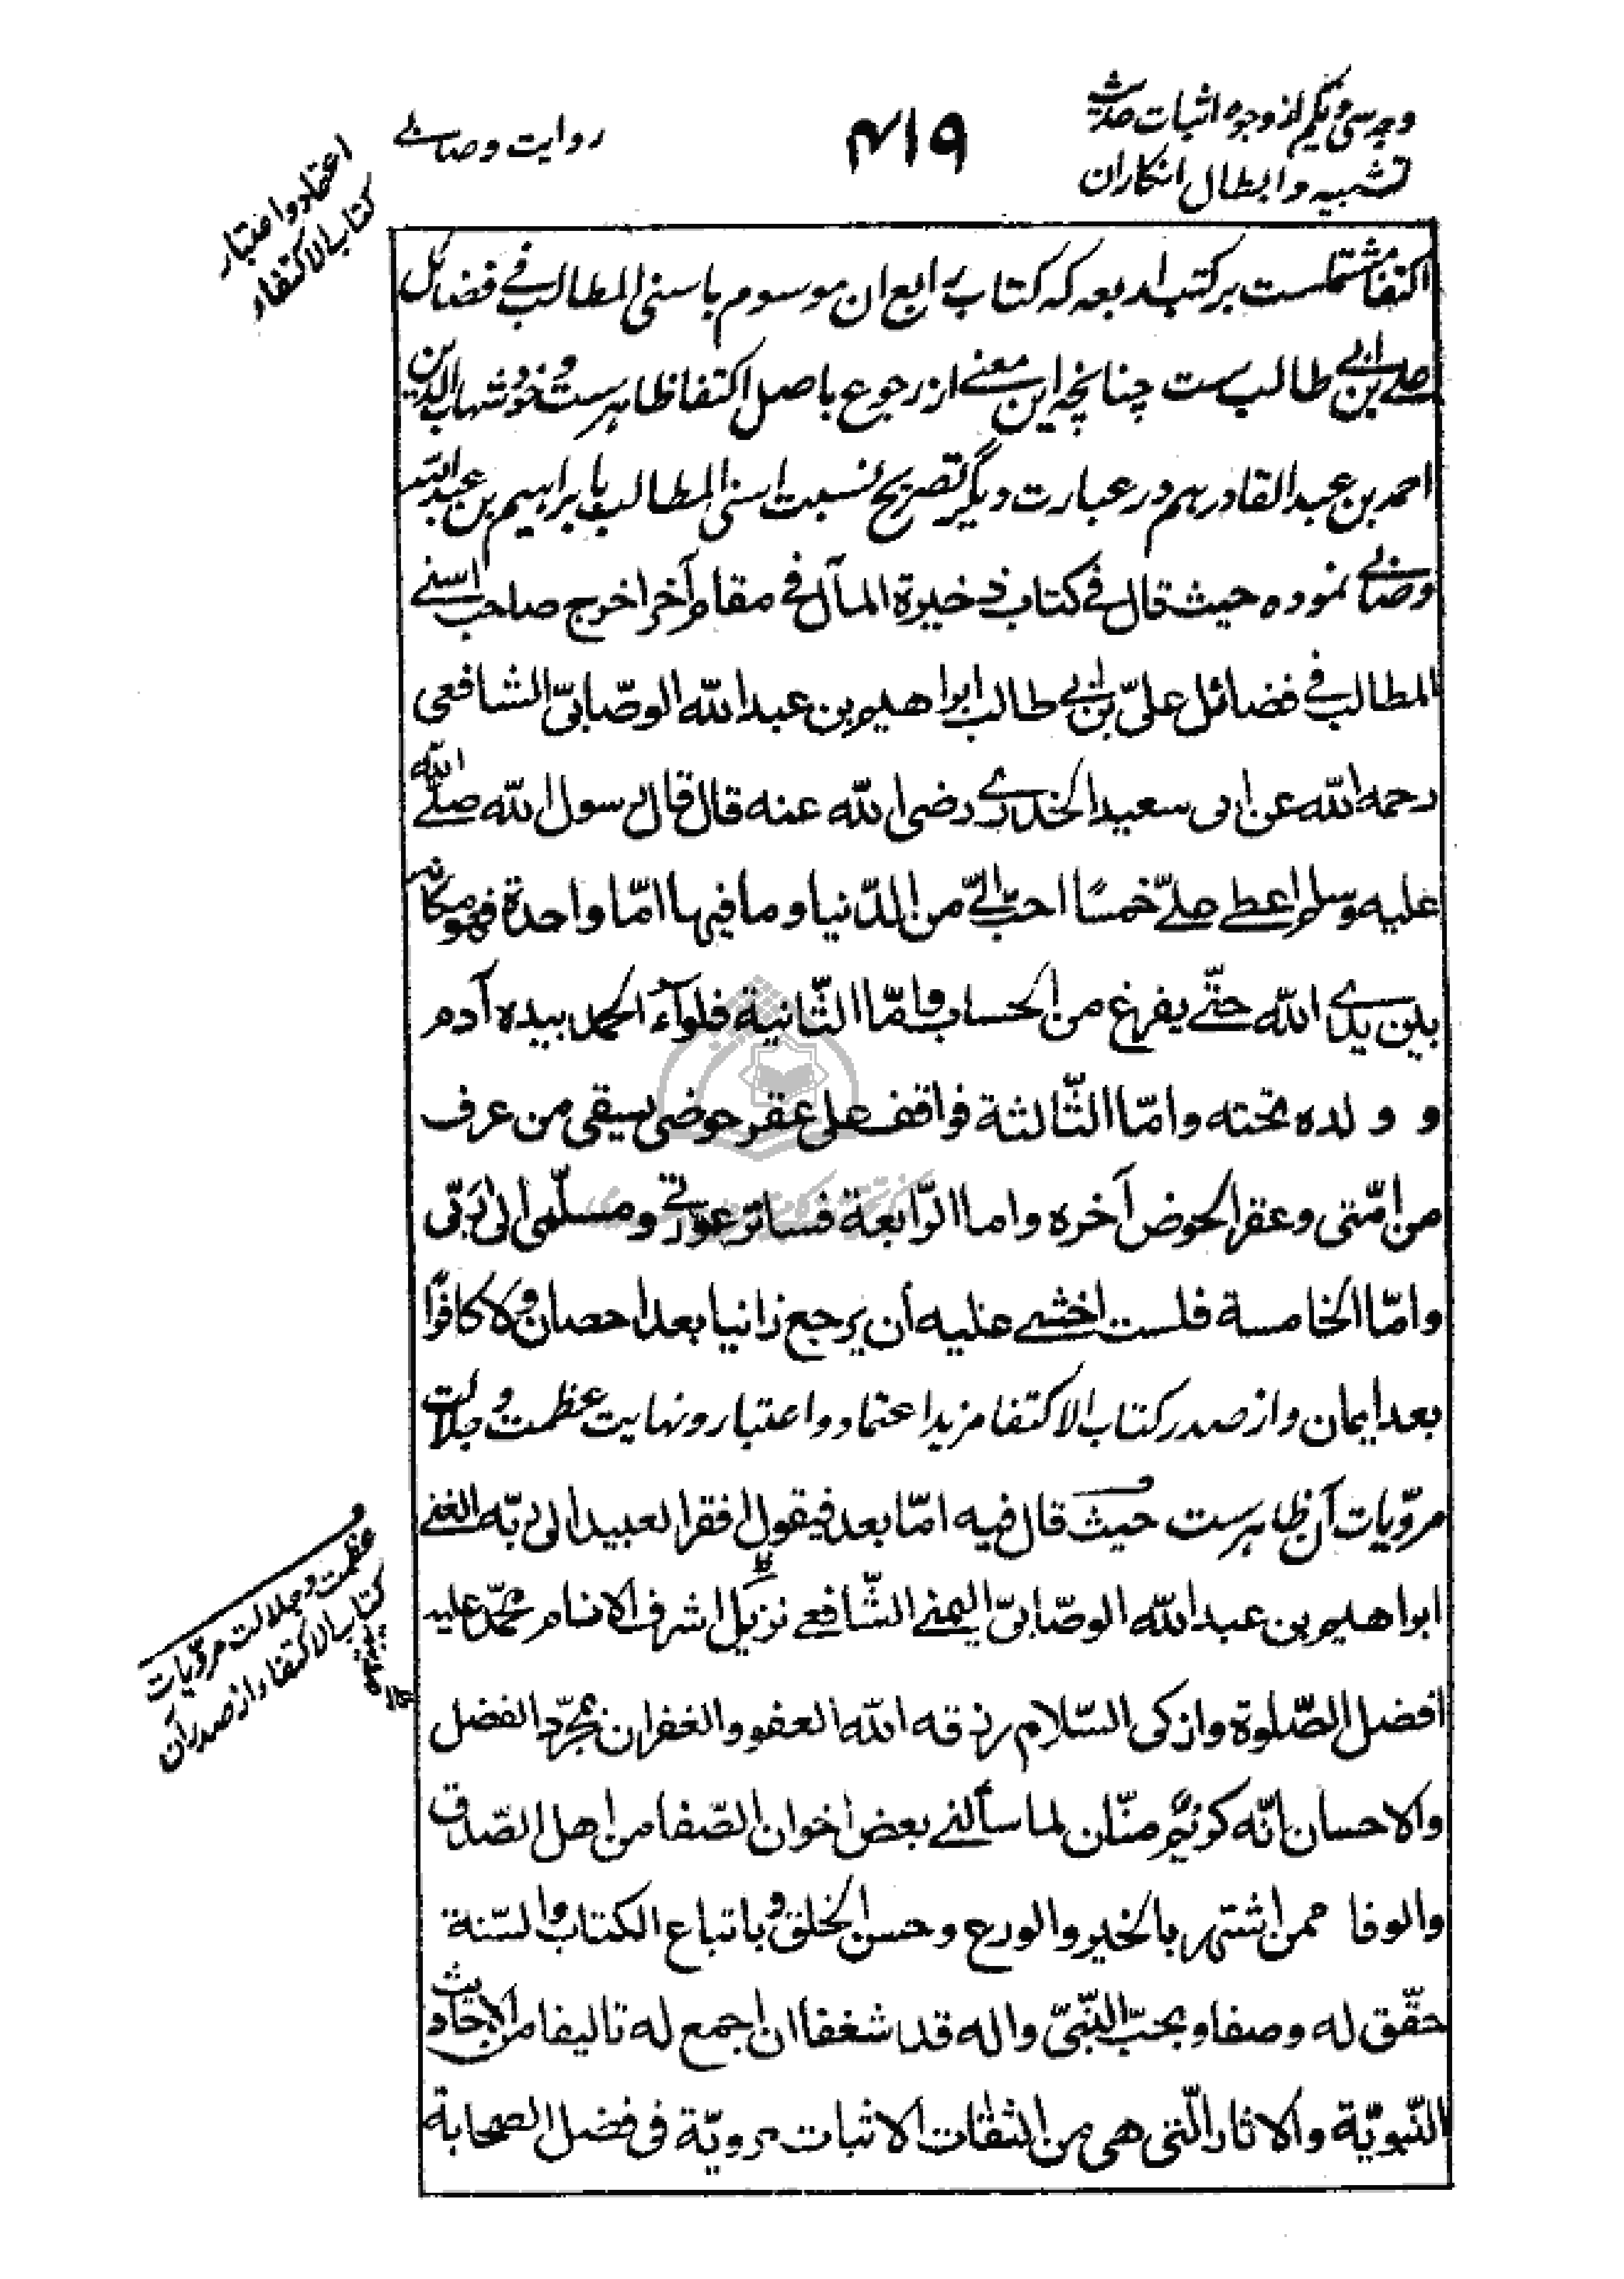 وجه سی و یکم از وجوه اثبات حدیث
تشبیه و ابطال انکاران
۴۱۹
روایت وصابی
اعتماد و اعتبار
کتاب الاکتفاء
اکتفا مشتملست بر کتب اربعه که کتاب رابع ان موسوم باسنی المطالب فی فضائل
علی بن ابی طالب ست چنانچه این معنی از رجوع باصل اکتفا ظاهرست و خود شهاب الدین
احمد بن عبد القادر هم در عبارت دیگر تصریح نسبت اسنی المطالب بابراهیم بن عبد الله
وصابی نموده حیث قال فی کتاب ذخیرة المآل فی مقام آخر اخرج صاحب اسنی
المطالب فی فضائل علیّ بن ابی طالب ابراهیم بن عبد الله الوصّابیّ الشافعی
رحمه الله عن ابی سعید الخدری رضی الله عنه قال قال رسول الله صلی الله
علیه وسلم اعطی علیّ خمسًا احبّ الیّ من الدّنیا وما فیها امّا واحدة فهو متکأ
بین یدی الله حتّی یفرغ من الحساب وامّا الثّانیة فلوآء الحمد بیده آدم
و ولده تحته وامّا الثّالثة فواقف علی عقر حوضی یسقی من عرف
من امّتی وعقر الحوض آخره واما الرّابعة فساتر عورتی ومسلّمی الی ربّی
وامّا الخامسة فلست اخشی علیه أن یرجع زانیا بعد احصان ولا کافرًا
بعد ایمان و از صدر کتاب الاکتفا مزید اعتماد و اعتبار و نهایت عظمت و جلالت
مرویّات آن ظاهرست حیث قال فیه امّا بعد فیقول افقر العبید الی ربّه الغنی
ابراهیم بن عبد الله الوصّابیّ الیمنی الشّافعی نزیل اشرف الانام محمّد علیه
افضل الصّلوة وازکی السّلام رزقه الله العفو والغفران بمجرّد الفضل
والاحسان انّه کریم منّان لما سألنی بعض اخوان الصّفا من اهل الصّدق
والوفا ممن اشتهر بالخیر والورع وحسن الخلق وباتباع الکتاب والسّنة
حقّق له وصفا وبحبّ النّبیّ واله قد شغفا ان اجمع له تالیفا من الاحادیث
النّبویّة والاثار الّتی هی من الثقات الاثبات مرویّة فی فضل الصحابة
عظمت و جلالت مرویّات
کتاب الاکتفاء از صدر آن